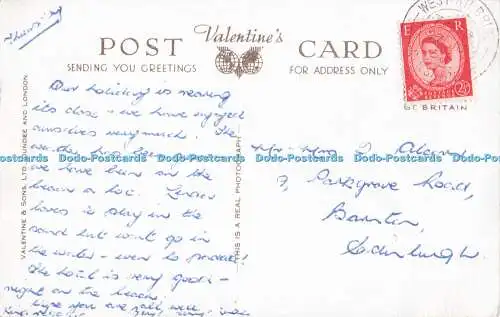 Thursday
POST Valentine's CARD
SENDING YOU GREETINGS
FOR ADDRESS ONLY
E R
WEST KILBRIDE
GT BRITAIN
VALENTINE & SONS, LTD., DUNDEE AND LONDON
THIS IS A REAL PHOTOGRAPH
Our holiday is nearing
its close - we have enjoyed
ourselves very much. The
weather has been
we have been on the
beach a lot.
loves to play in the
sand but won't go in
the water - even to paddle
The hotel is very good -
right on the beach.
Hope you are all well
Dodo-Postcards Dodo-Postcards Dodo-Postcards Dodo-Postcards Dodo-Postcards Dodo-Postcards
Mr & Mrs J.
7, Parkgrove Road,
Barnton,
Edinburgh.
Dodo-Postcards Dodo-Postcards Dodo-Postcards Dodo-Postcards Dodo-Postcards Dodo-Postcards